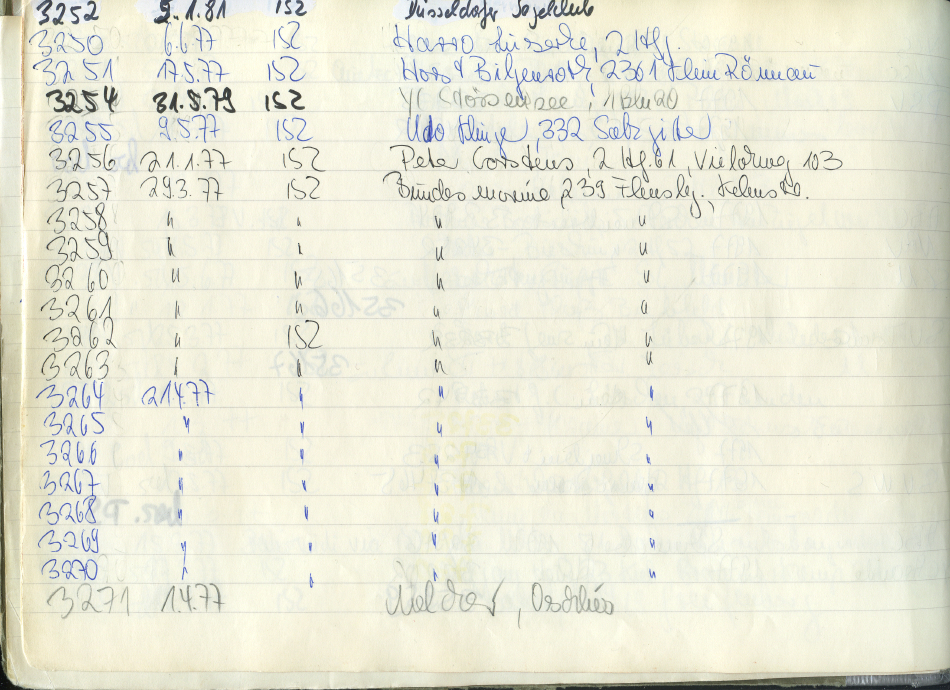 3252 2.1.81 152 Düsseldorfer Segelclub
3250 6.6.77 152 Hasso 2 Hbg.
3251 17.5.77 152 Horst 2361 Klein Rönnau
3254 31.5.79 152 YC
3255 2.5.77 152 Udo Kluge, 332 Salzgitter
3256 21.1.77 152 Peter Carstens, 2 Hbg. 61, Vielohweg 103
3257 29.3.77 152 Bundesmarine, 239 Flensbg.,
3258 " " " "
3259 " " " "
3260 " " " "
3261 " " " "
3262 " 152 " "
3263 " " " "
3264 21.4.77 " " "
3265 " " " "
3266 " " " "
3267 " " " "
3268 " " " "
3269 " " " "
3270 " " " "
3271 1.4.77